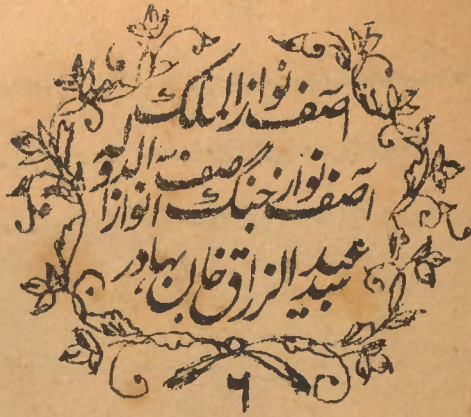 آصف نواز الملک
آصف نواز جنگ آصف نواز الدولہ
سید عبد الرزاق خان بہادر
٦